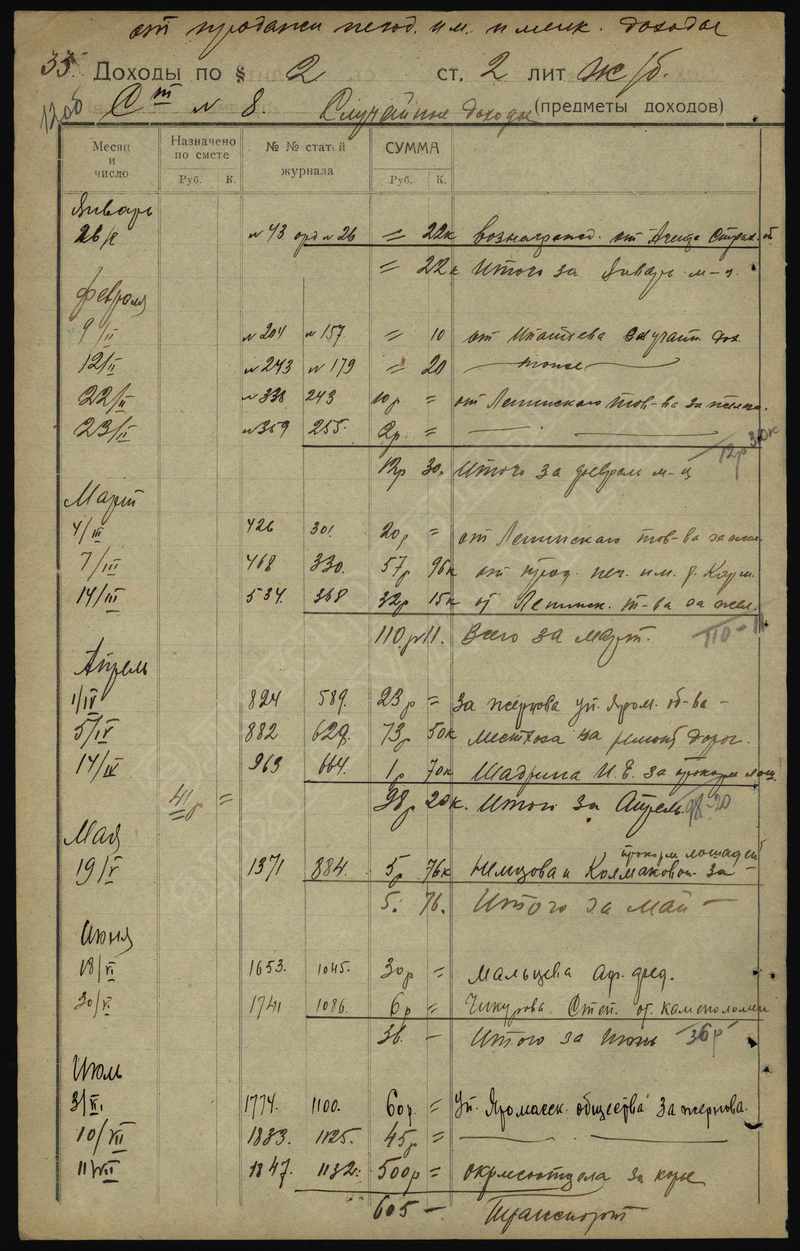 от продажи негод. им. и мелк. доходов
33. Доходы по § 2 ст. 2 лит ж/б.
1200 Ст № 8. Случайные доходы (предметы доходов)
Месяц и число Назначено по смете № № статей журнала СУММА
Руб. К. Руб. К.
Январь
26/I № 43 орд № 26 = 22к вознагражд. от Агента Страх. об
= 22к Итого за Январь м-ц.
Февраля
9/II № 204 № 157 = 10 от случайн дох
12/II № 243 № 179 = 20 тоже
22/II № 338 243 10р = от Ленинского тов-ва за
23/II № 359 255. 2р. = — —
12р 30. Итого за февраль м-ц 12р 30к
Март
4/III 426 301 20р = от Ленинского тов-ва за
7/III 468 330. 57р 96к от прод. неч. им. г.
14/III 534. 368 32р 15к от Ленинск. т-ва за жел.
110.р 11. Всего за март. 110-11
Апрель
1/IV 824 589. 23р = за жернова Уп. Яром. об-ва —
5/IV 882 629. 73р 50к Местхоза за ремонт дорог.
14/IV 963 664. 1р 70к Шадрина И. Е. за прокорм лош.
41р = 98р 20к. Итого за Апрель 98-20
Мая
прокорм лошадей
19/V 1371 884. 5р 76к Немцова и Колмаковой за —
5. 76. Итого за Май —
Июня
18/VI 1653. 1045. 30р = Мальцева Аф. фед.
30/VI 1741 1086. 6р = Чикурова Степ. от каменоломен
36. — Итого за Июнь 36р
Июль
3/VII 1774. 1100. 60р. = Уп. Яромасск. общества за жернова.
10/VII 1833. 1125. 45р = — —
11/VII 1847. 1132. 500р = окрместотдела за
605 — Транспорт